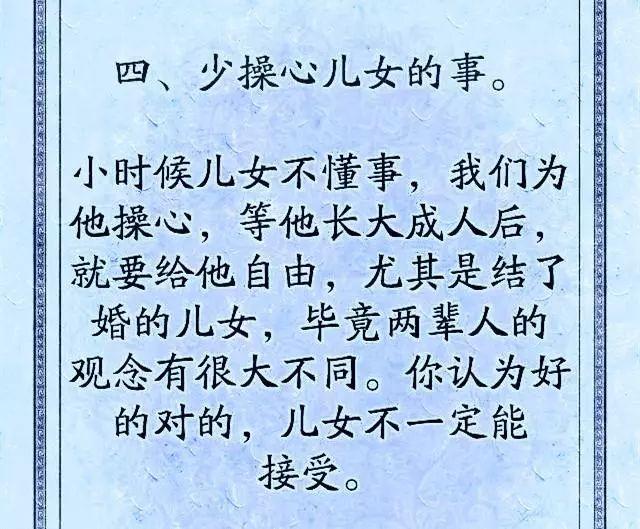 四、少操心儿女的事。
小时候儿女不懂事，我们为
他操心，等他长大成人后，
就要给他自由，尤其是结了
婚的儿女，毕竟两辈人的
观念有很大不同。你认为好
的对的，儿女不一定能
接受。